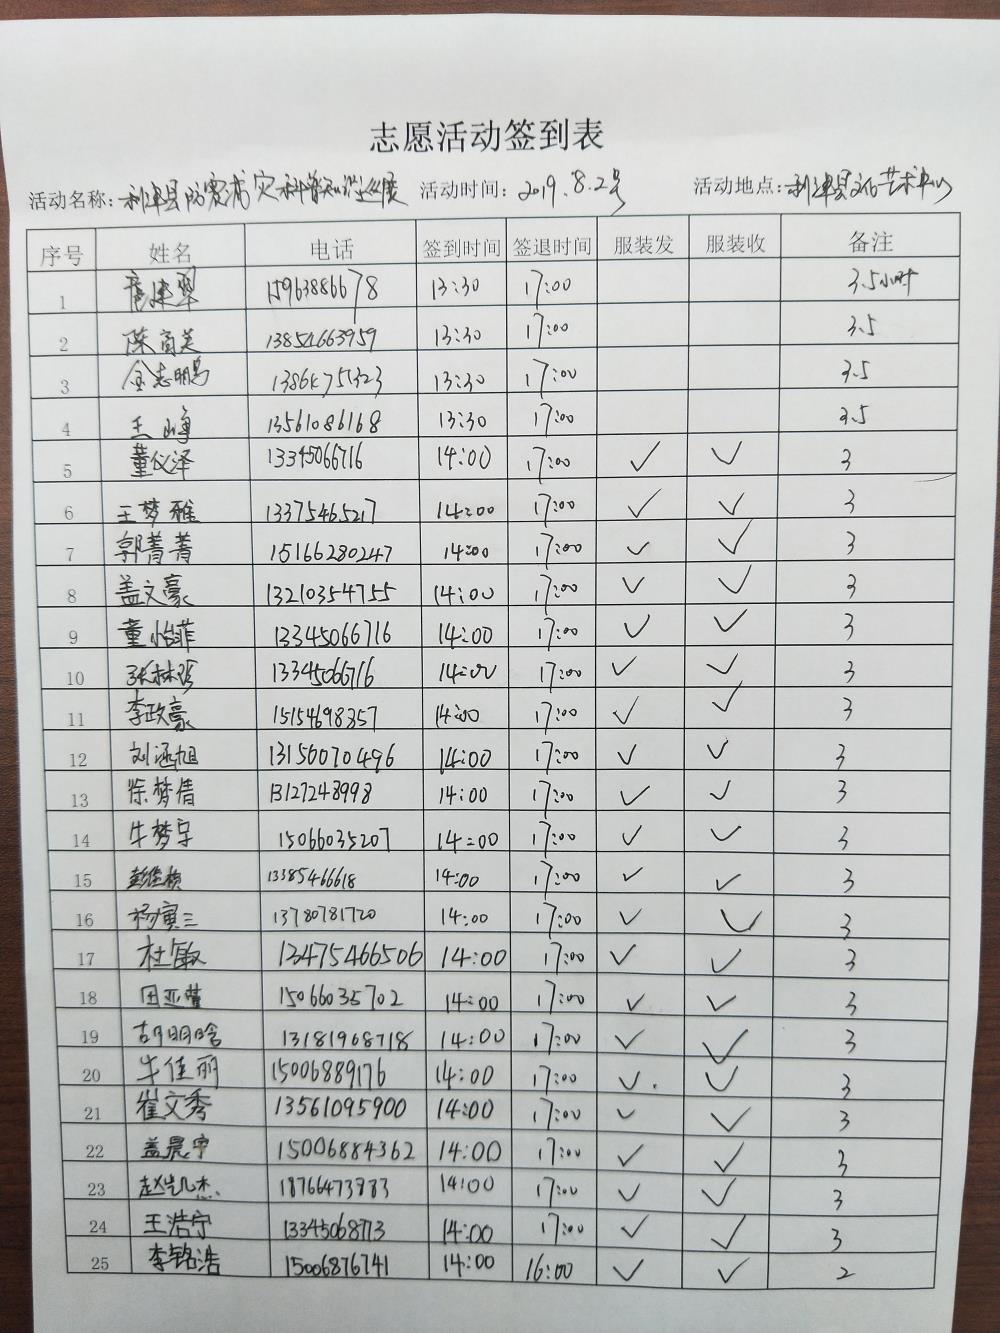 志愿活动签到表
活动名称：利津县防震减灾科普知识巡展 活动时间：2019.8.2号 活动地点：利津县文化艺术中心
序号 姓名 电话 签到时间 签退时间 服装发 服装收 备注
1 15963886678 13:30 17:00 3.5小时
2 陈富英 13854663959 13:30 17:00 3.5
3 全志鹏 13:30 17:00 3.5
4 王峰 13561086168 13:30 17:00 3.5
5 董仪泽 13345066716 14:00 17:00 ✓ ✓ 3
6 王梦雅 13375465217 14:00 17:00 ✓ ✓ 3
7 郭菁菁 15166280247 14:00 17:00 ✓ ✓ 3
8 盖文豪 13210354755 14:00 17:00 ✓ ✓ 3
9 董怡菲 13345066716 14:00 17:00 ✓ ✓ 3
10 张林珍 13345066716 14:00 17:00 ✓ ✓ 3
11 李政豪 15154698357 14:00 17:00 ✓ ✓ 3
12 刘涵旭 13156070496 14:00 17:00 ✓ ✓ 3
13 徐梦倩 13127248998 14:00 17:00 ✓ ✓ 3
14 牛梦宇 15066035207 14:00 17:00 ✓ ✓ 3
15 13385466618 14:00 17:00 ✓ ✓ 3
16 杨寅三 13780781720 14:00 17:00 ✓ ✓ 3
17 杜敏 13475466506 14:00 17:00 ✓ ✓ 3
18 田亚萱 15066035702 14:00 17:00 ✓ ✓ 3
19 胡明晗 13181968718 14:00 17:00 ✓ ✓ 3
20 牛佳丽 15006889176 14:00 17:00 ✓ ✓ 3
21 崔文秀 13561095900 14:00 17:00 ✓ ✓ 3
22 盖晨宇 15006884362 14:00 17:00 ✓ ✓ 3
23 赵凯杰 18766473983 14:00 17:00 ✓ ✓ 3
24 王浩宁 13345068713 14:00 17:00 ✓ ✓ 3
25 李铭浩 15006876741 14:00 16:00 ✓ ✓ 2